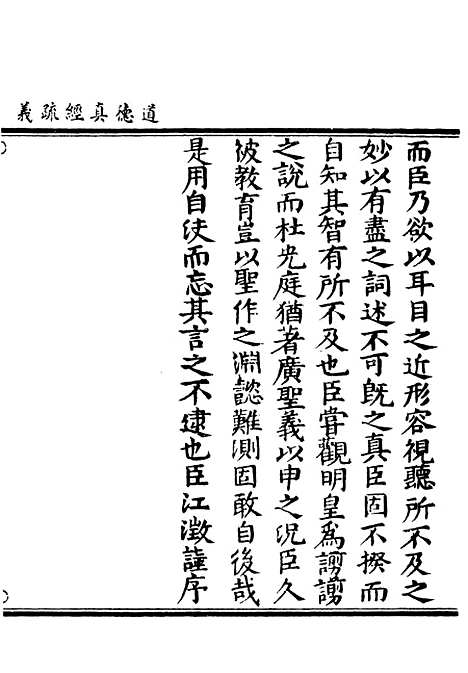 道德真經疏義
而臣乃欲以耳目之近形容視聽所不及之
妙以有盡之詞述不可旣之真臣固不揆而
自知其智有所不及也臣甞觀明皇爲謭謭
之說而杜光庭猶著廣聖義以申之況臣久
彼教育豈以聖作之淵懿難測固敢自後哉
是用自決而忘其言之不逮也臣江澂謹序